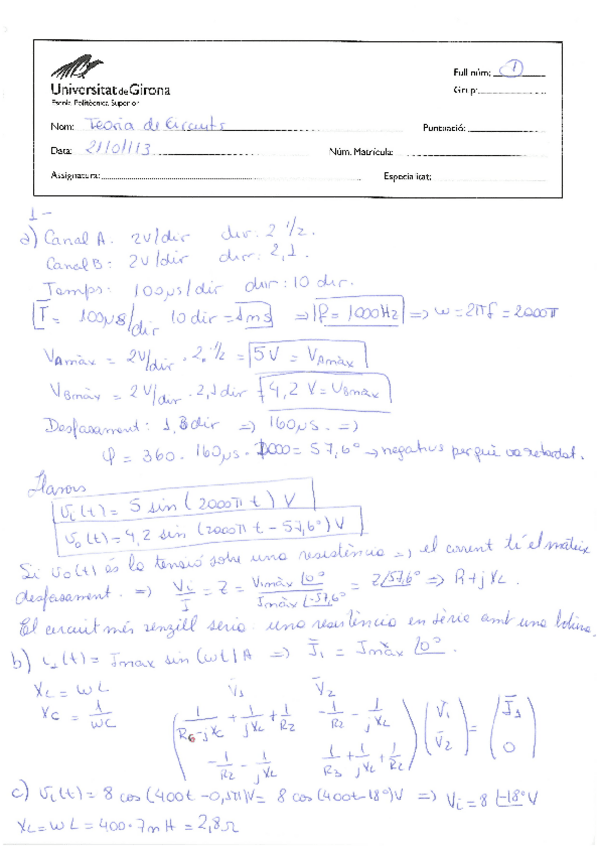 Universitat de Girona
Escola Politècnica Superior
Full núm: 1
Grup:
Nom: Teoria de Circuits
Puntuació:
Data: 21/01/13
Núm. Matrícula:
Assignatura:
Especialitat:
1-
a) Canal A: 2V/div div: 2 1/2.
Canal B: 2V/div div: 2,1.
Temps: 100μs/div div: 10 div.
T = 100μs/div 10 div = 1ms ⇒ f = 1000Hz ⇒ ω = 2πf = 2000π
VAmàx = 2V/div · 2 · 1/2 = 5V = VAmàx
VBmàx = 2V/div · 2,1 div = 4,2 V = VBmàx
Desfasament: 1,6 div ⇒ 160μs. ⇒
φ = 360 · 160μs · 1000 = 57,6° → negatius perquè va retardat.
Llavors
Vi(t) = 5 sin (2000π t) V
Vo(t) = 4,2 sin (2000π t - 57,6°) V
Si Vo(t) és la tensió sobre una resistència ⇒ el corrent té el mateix
desfasament. ⇒ Vi/I = Z = Vimàx |0° / Imàx |-57,6° = Z|57,6° ⇒ R + jXL.
El circuit més senzill seria una resistència en sèrie amb una bobina.
b) i1(t) = Imax sin(ωt) A ⇒ I1 = Imàx |0°.
XL = ωL V1 V2
XC = 1/ωC
1/(R6-jXC) + 1/jXL + 1/R2 -1/R2 - 1/jXL V1 = I1
-1/R2 - 1/jXL 1/R3 + 1/jXL + 1/R2 V2 0
c) Vi(t) = 8 cos (400t - 0,1π)V = 8 cos (400t - 18°)V ⇒ Vi = 8 |-18° V
XL = ωL = 400 · 7mH = 2,8Ω